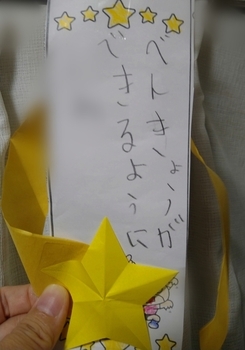 べんきょうが
できるように